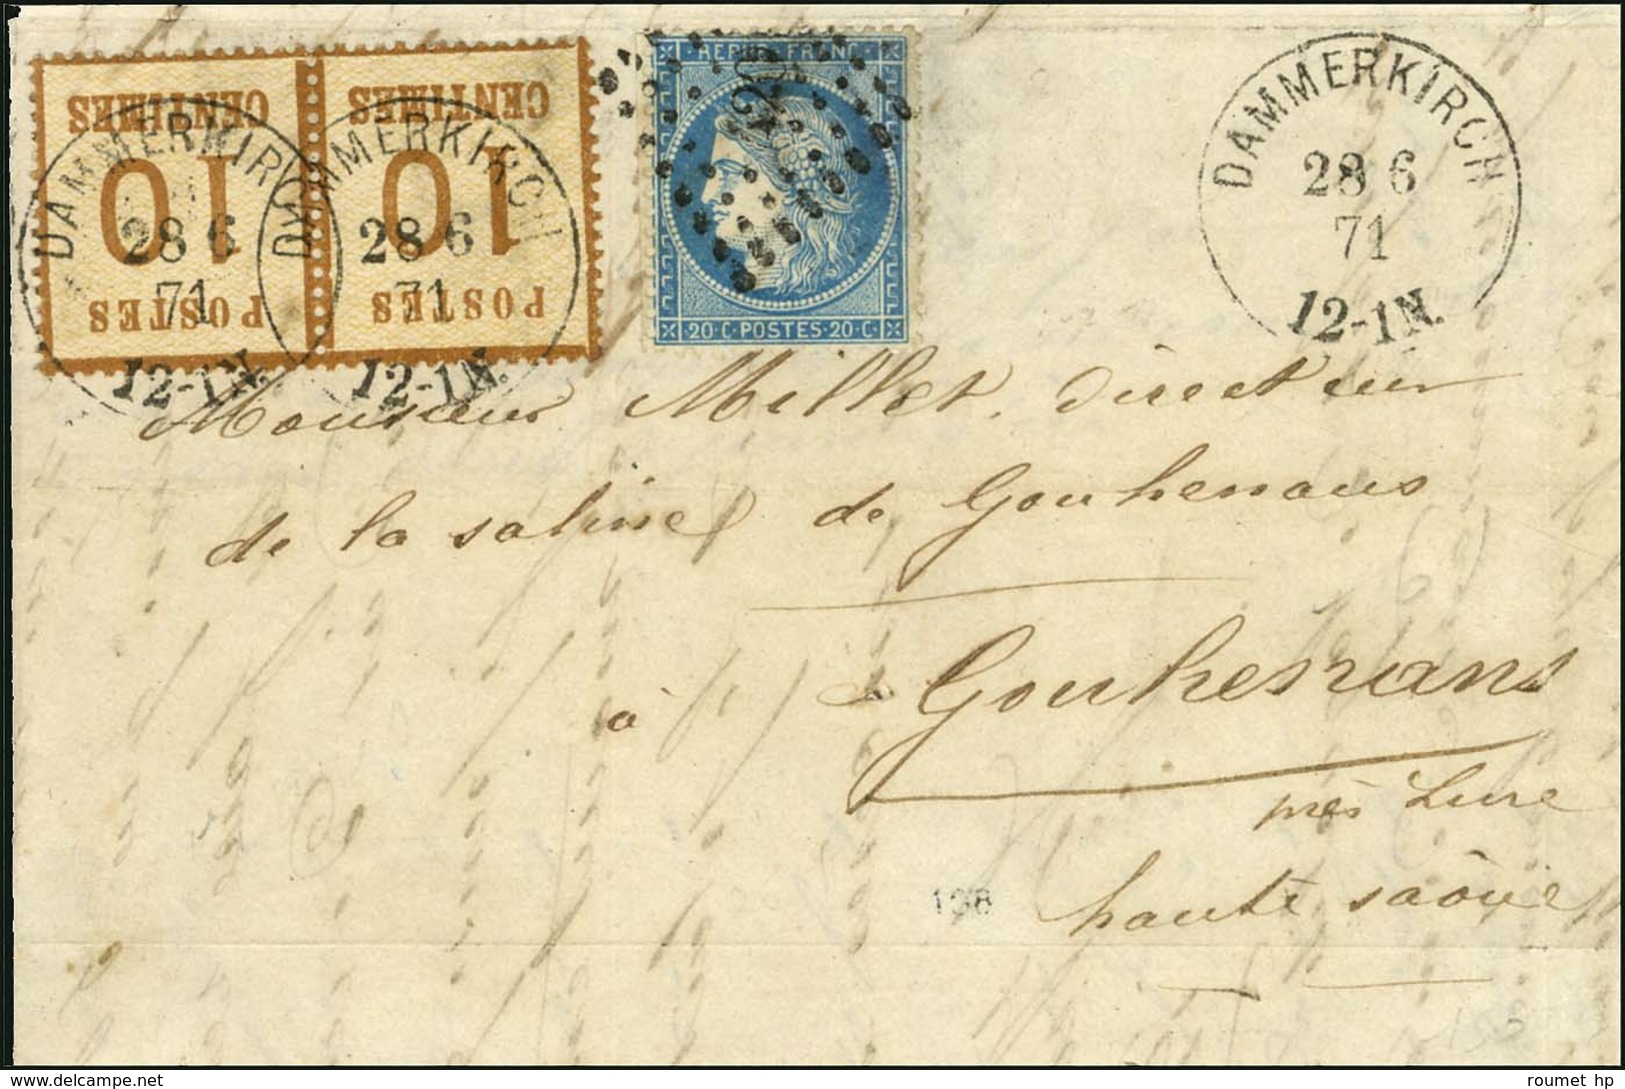 POSTES 10 CENTIMES
POSTES 10 CENTIMES
DAMMERKIRCH
28 6
71
12-1N.
DAMMERKIRCH
28 6
71
12-1N.
REPUB·FRANC·
·20·C·POSTES·20·C·
DAMMERKIRCH
28 6
71
12-1N.
Monsieur Millet, directeur
de la saline de Gouhenans
à Gouhenans
près Lure
haute saône
138
roumet hp